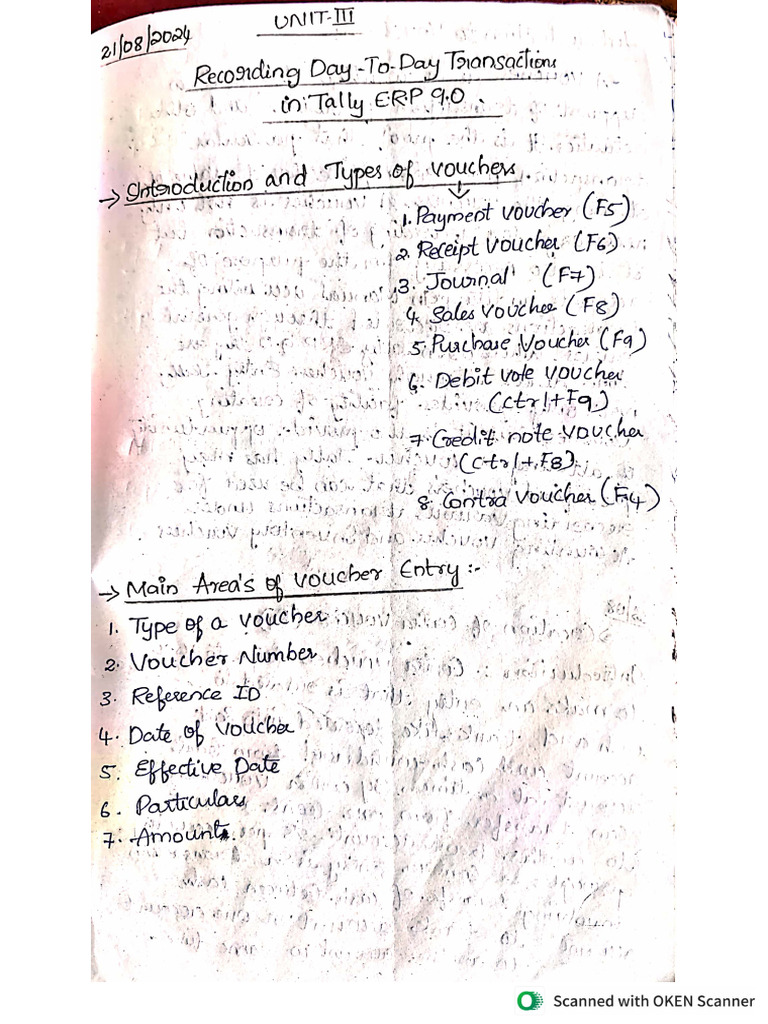 21/08/2024
UNIT-III
Recording Day-To-Day Transactions
in Tally ERP 9.0.
→ Introduction and Types of vouchers
1. Payment voucher (F5)
2. Receipt voucher (F6)
3. Journal (F7)
4. Sales voucher (F8)
5. Purchase Voucher (F9)
6. Debit vote voucher
(ctrl+F9)
7. Credit note voucher
(ctrl+F8)
8. Contra voucher (F4)
→ Main Area's of voucher Entry:-
1. Type of a voucher
2. Voucher Number
3. Reference ID
4. Date of voucher
5. Effective Date
6. Particulars
7. Amount.
Scanned with OKEN Scanner